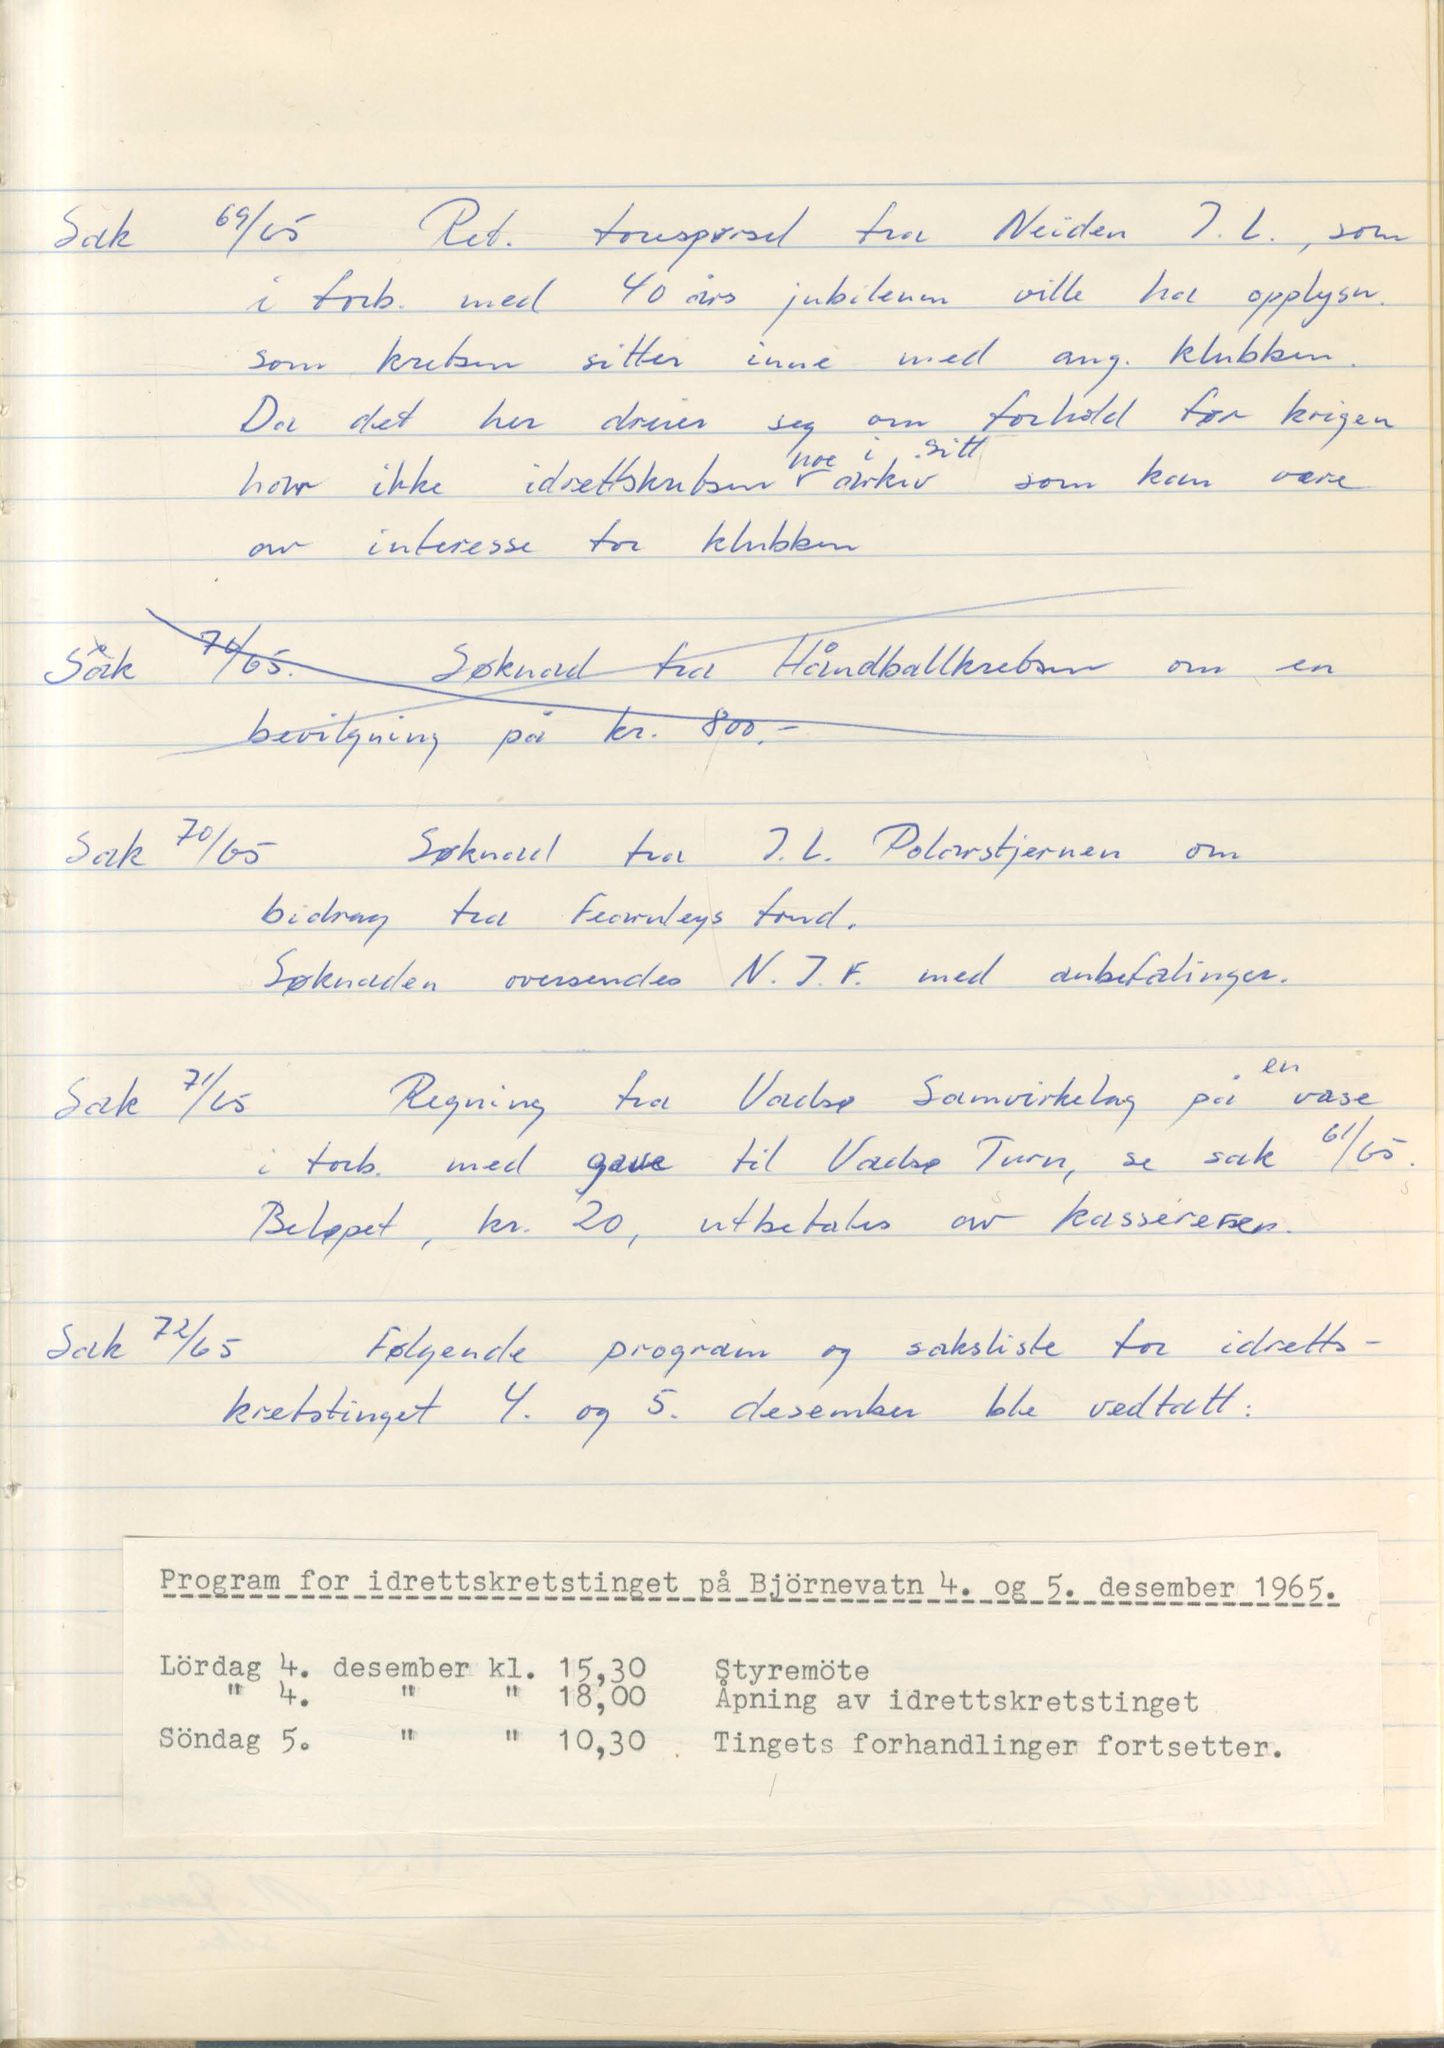 Sak 69/65 Ref. forespørsel fra Neiden I.L., som
i forb. med 40 års jubileum ville ha opplysn.
som kretsen sitter inne med ang. klubben.
Da det her dreier seg om forhold før krigen
har ikke idrettskretsen noe i sitt arkiv som kan være
av interesse for klubben
Sak 70/65. Søknad fra Håndballkretsen om en
bevilgning på kr. 800.-
Sak 70/65 Søknad fra I.L. Polarstjernen om
bidrag fra Fearnleys fond.
Søknaden oversendes N.I.F. med anbefalinger.
Sak 71/65 Regning fra Vadsø Samvirkelag på en vase
i forb. med gave til Vadsø Turn, se sak 61/65.
Beløpet, kr. 20, utbetales av kassereren.
Sak 72/65 Følgende program og saksliste for idretts-
kretstinget 4. og 5. desember ble vedtatt:
Program for idrettskretstinget på Björnevatn 4. og 5. desember 1965.
Lördag 4. desember kl. 15,30 Styremöte
" 4. " " 18,00 Åpning av idrettskretstinget
Söndag 5. " " 10,30 Tingets forhandlinger fortsetter.